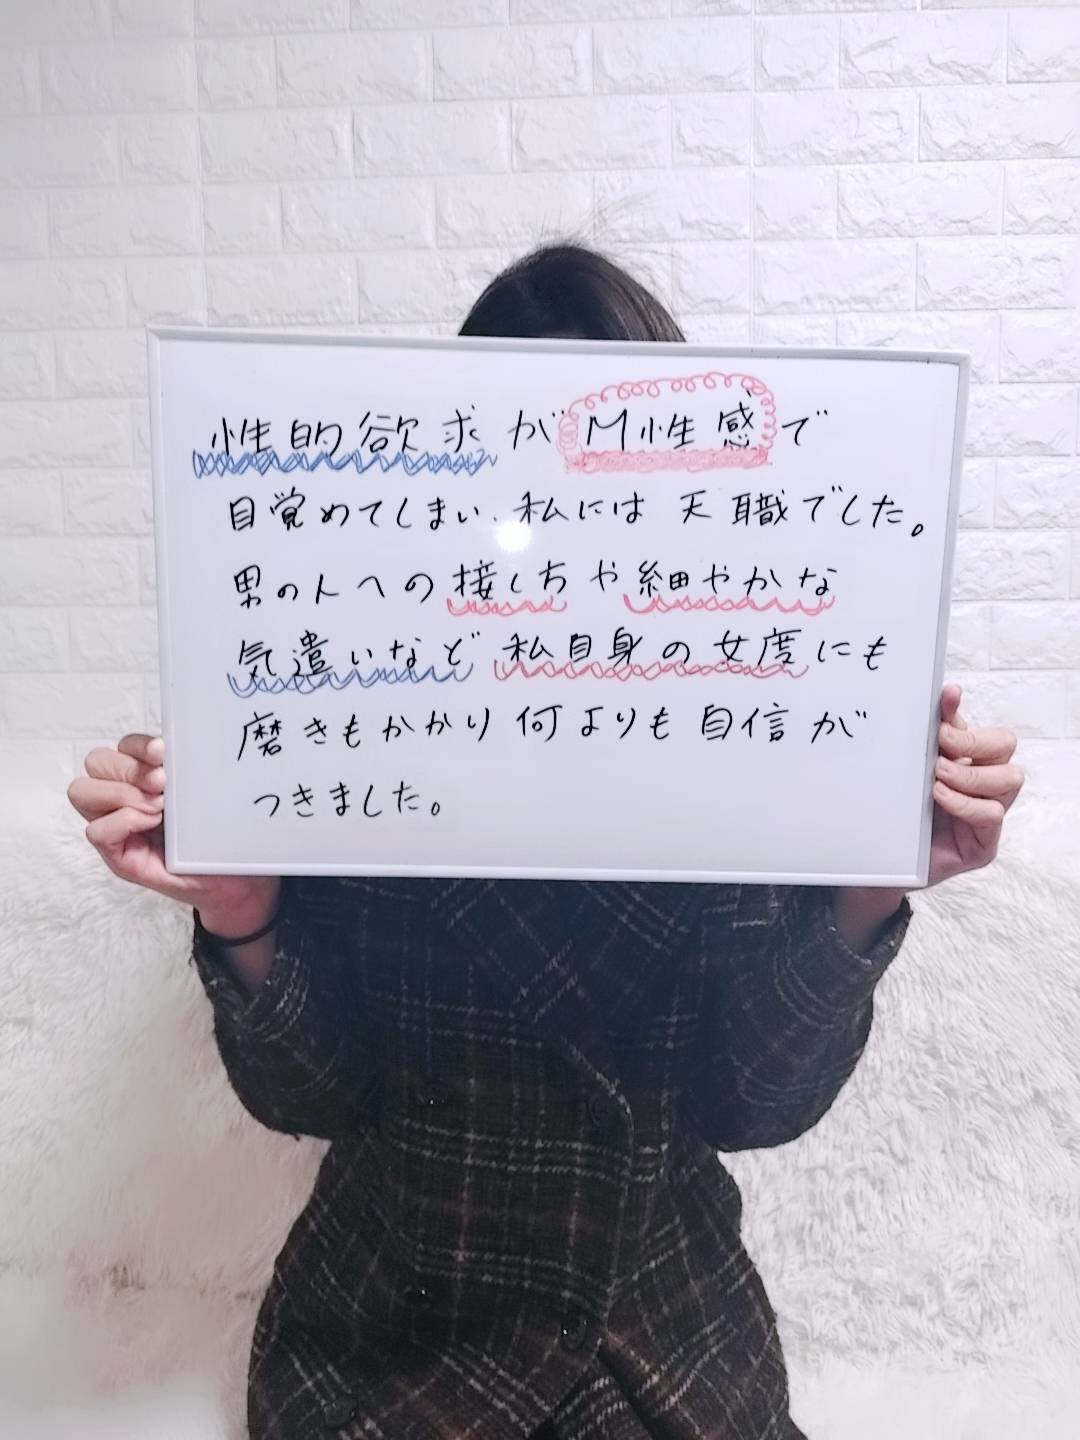 性的欲求がM性感で
目覚めてしまい、私には天職でした。
男の人への接し方や細やかな
気遣いなど私自身の女度にも
磨きもかかり何よりも自信が
つきました。